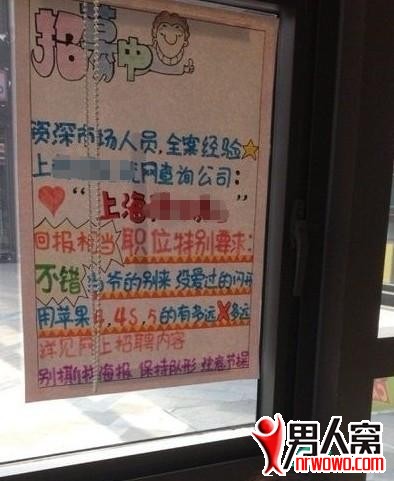 招募中
资深市场人员,全案经验
上 网查询公司:
"上海
回报相当 职位特别要求:
不错 当爷的别来 没爱过的闪开
用苹果4,4S,5的有多远X多远
详见网上招聘内容
别撕扯海报 保持队形 注意节操
男人窝
nrwowo.com